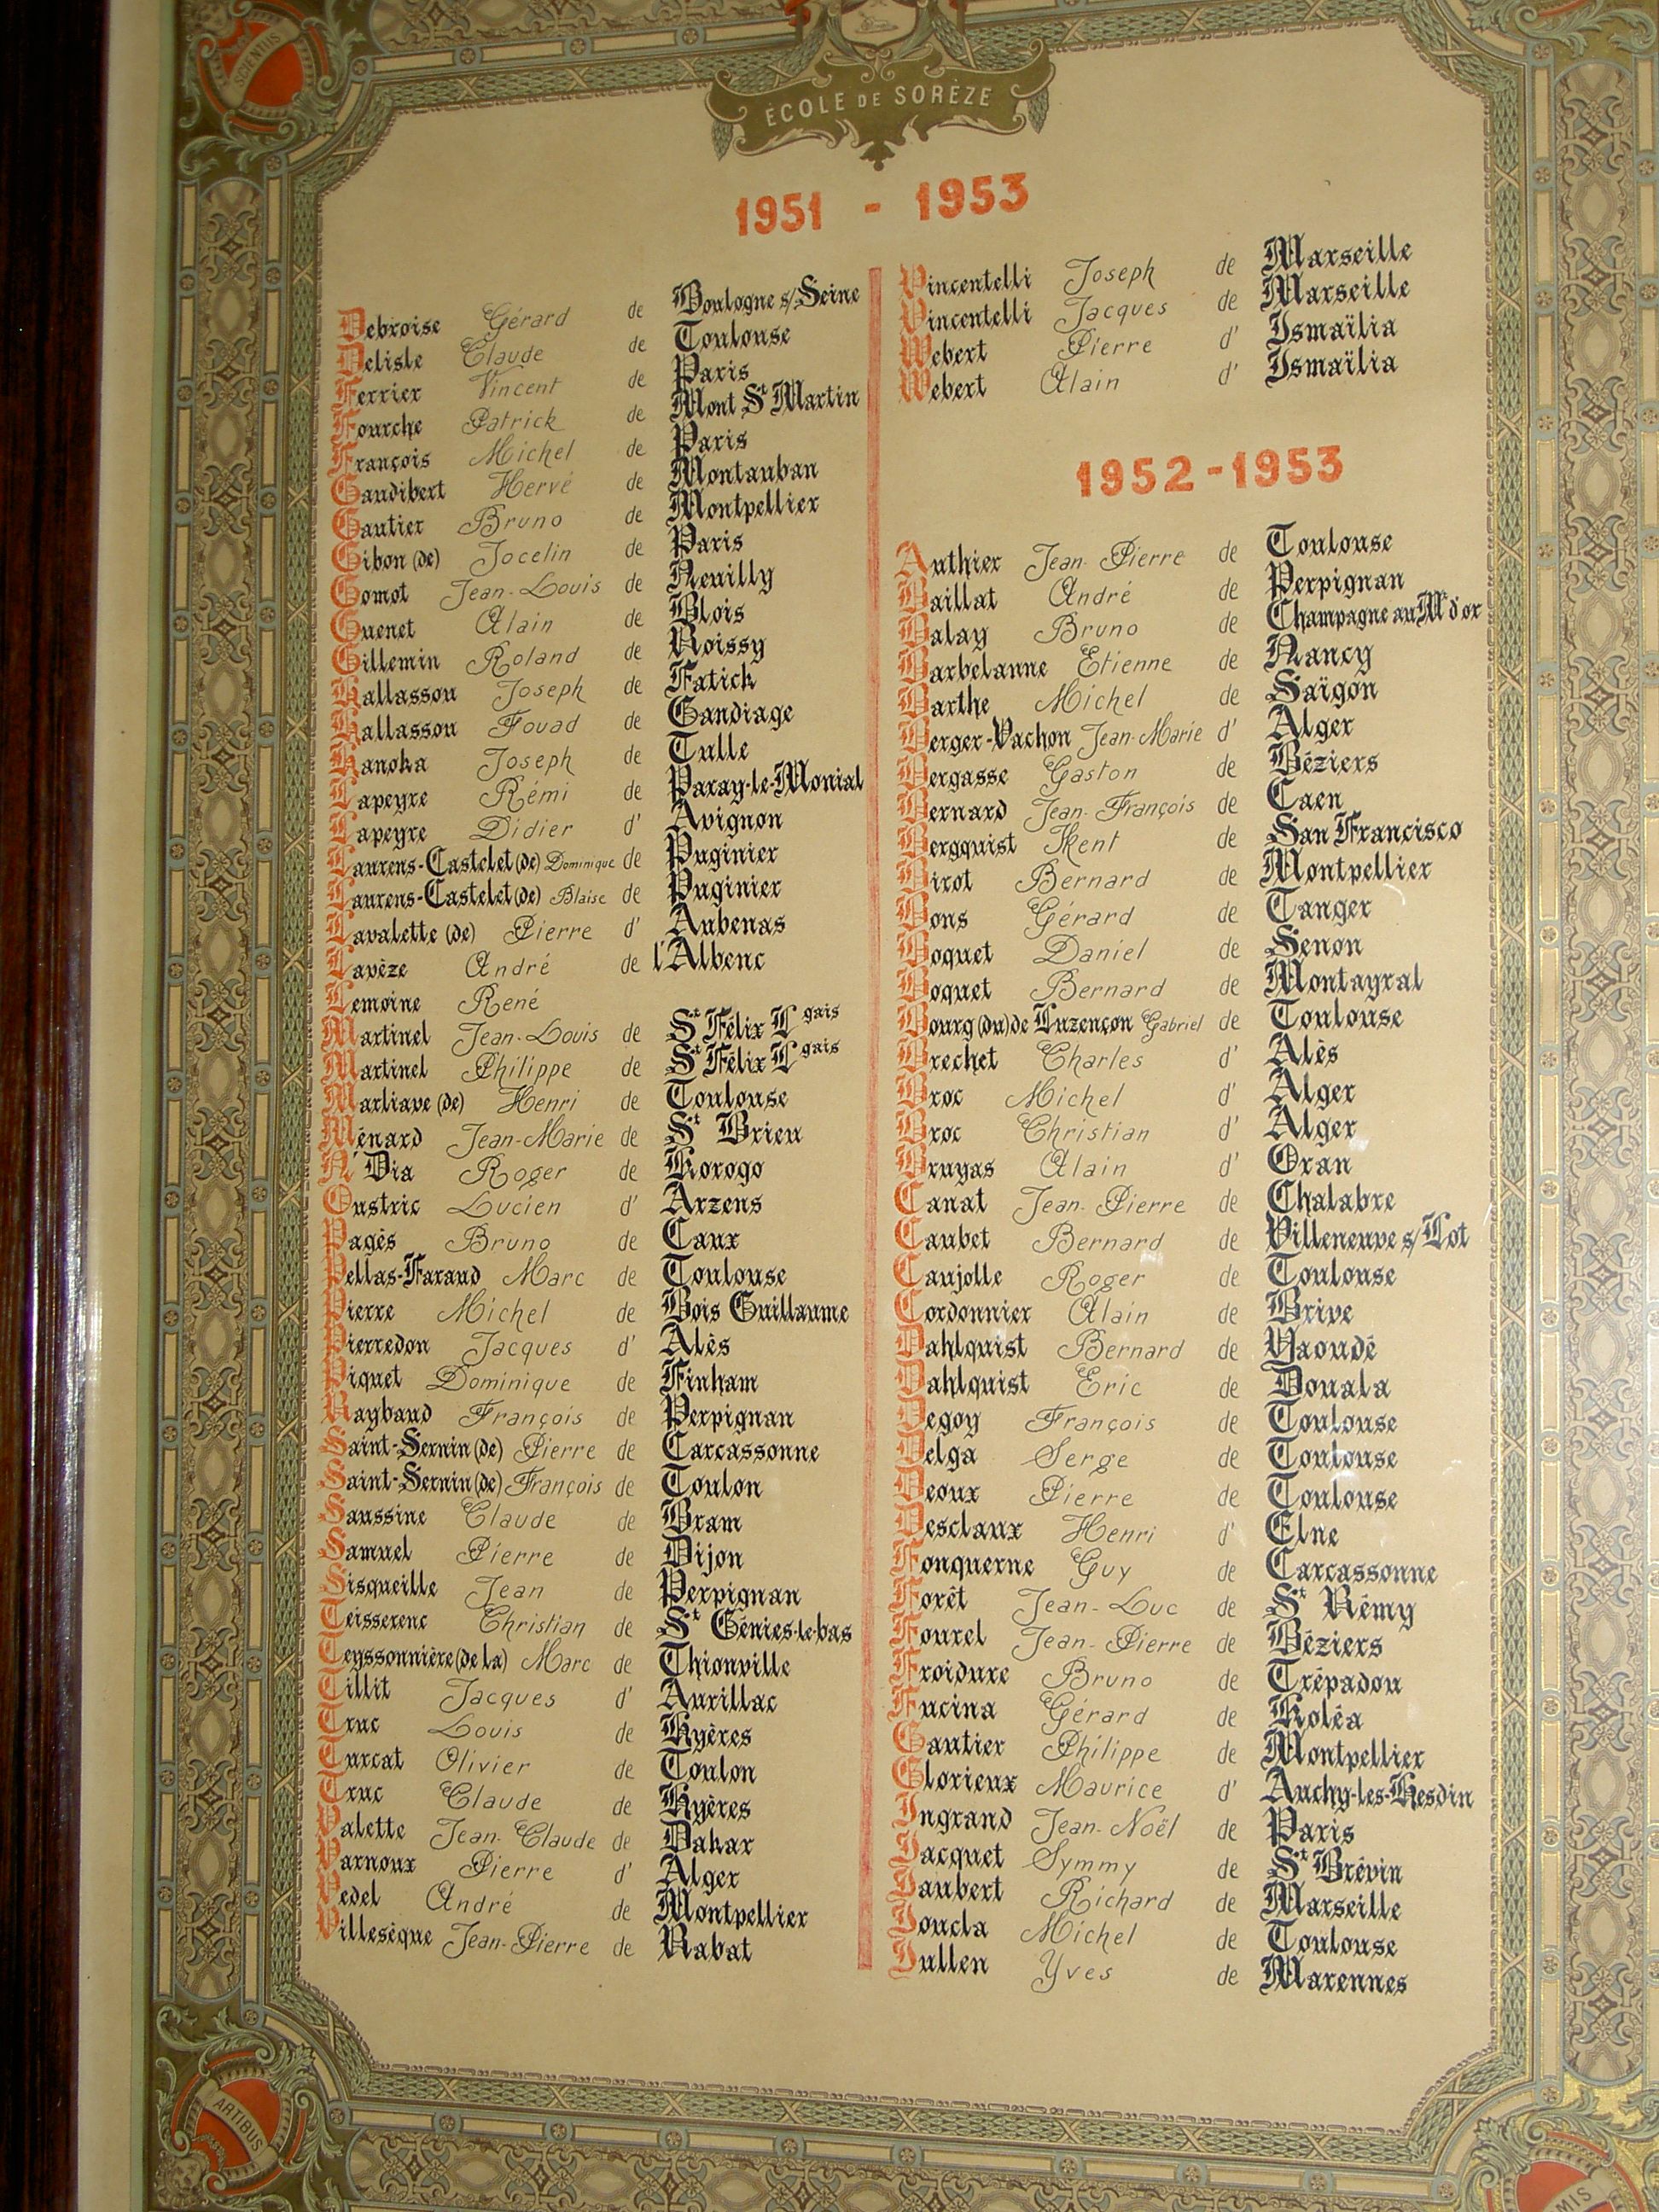 SCIENTIIS
ÉCOLE DE SORÈZE
1951 - 1953
Debroise Gérard de Boulogne s/Seine
Delisle Claude de Toulouse
Ferrier Vincent de Paris
Fourche Patrick de Mont St Martin
François Michel de Paris
Gaudibert Hervé de Montauban
Gautier Bruno de Montpellier
Gibon (de) Jocelin de Paris
Gomot Jean-Louis de Neuilly
Guenet Alain de Blois
Gillemin Roland de Roissy
Hallassou Joseph de Fatick
Hallassou Fouad de Gandiage
Hanoka Joseph de Tulle
Lapeyre Rémi de Paray-le-Monial
Lapeyre Didier d' Avignon
Laurens-Castelet (de) Dominique de Puginier
Laurens-Castelet (de) Blaise de Puginier
Lavalette (de) Pierre d' Aubenas
Lavèze André de l'Albenc
Lemoine René
Martinel Jean-Louis de St Félix Lgais
Martinel Philippe de St Félix Lgais
Marliave (de) Henri de Toulouse
Ménard Jean-Marie de St Brieu
N'Dia Roger de Korogo
Oustric Lucien d' Arzens
Pagès Bruno de Caux
Pellas-Faraud Marc de Toulouse
Pierre Michel de Bois Guillaume
Pierredon Jacques d' Alès
Piquet Dominique de Finham
Raybaud François de Perpignan
Saint-Sernin (de) Pierre de Carcassonne
Saint-Sernin (de) François de Toulon
Saussine Claude de Bram
Samuel Pierre de Dijon
Sisqueille Jean de Perpignan
Teisserenc Christian de St Génies-le-bas
Teyssonnière (de la) Marc de Thionville
Tillit Jacques d' Aurillac
Truc Louis de Hyères
Turcat Olivier de Toulon
Truc Claude de Hyères
Valette Jean-Claude de Dakar
Varnoux Pierre d' Alger
Vedel André de Montpellier
Villesèque Jean-Pierre de Rabat
Vincentelli Joseph de Marseille
Vincentelli Jacques de Marseille
Webert Pierre d' Ismaïlia
Webert Alain d' Ismaïlia
1952-1953
Authier Jean-Pierre de Toulouse
Baillat André de Perpignan
Balay Bruno de Champagne au Mt d'or
Barbelanne Etienne de Nancy
Barthe Michel de Saïgon
Berger-Vachon Jean-Marie d' Alger
Bergasse Gaston de Béziers
Bernard Jean-François de Caen
Bergquist Kent de San Francisco
Birot Bernard de Montpellier
Bons Gérard de Tanger
Boquet Daniel de Senon
Boquet Bernard de Montayral
Bourg (du) de Luzençon Gabriel de Toulouse
Brechet Charles d' Alès
Broc Michel d' Alger
Broc Christian d' Alger
Bruyas Alain d' Oran
Canat Jean-Pierre de Chalabre
Caubet Bernard de Villeneuve s/Lot
Caujolle Roger de Toulouse
Cordonnier Alain de Brive
Dahlquist Bernard de Yaoudé
Dahlquist Eric de Douala
Degoy François de Toulouse
Delga Serge de Toulouse
Deoux Pierre de Toulouse
Desclaux Henri d' Elne
Fonquerne Guy de Carcassonne
Forêt Jean-Luc de St Rémy
Fourel Jean-Pierre de Béziers
Froidure Bruno de Trépadou
Fucina Gérard de Koléa
Gautier Philippe de Montpellier
Glorieux Maurice d' Auchy-les-Hesdin
Ingrand Jean-Noël de Paris
Jacquet Symmy de St Brévin
Jaubert Richard de Marseille
Joucla Michel de Toulouse
Jullen Yves de Marennes
ARTIBUS